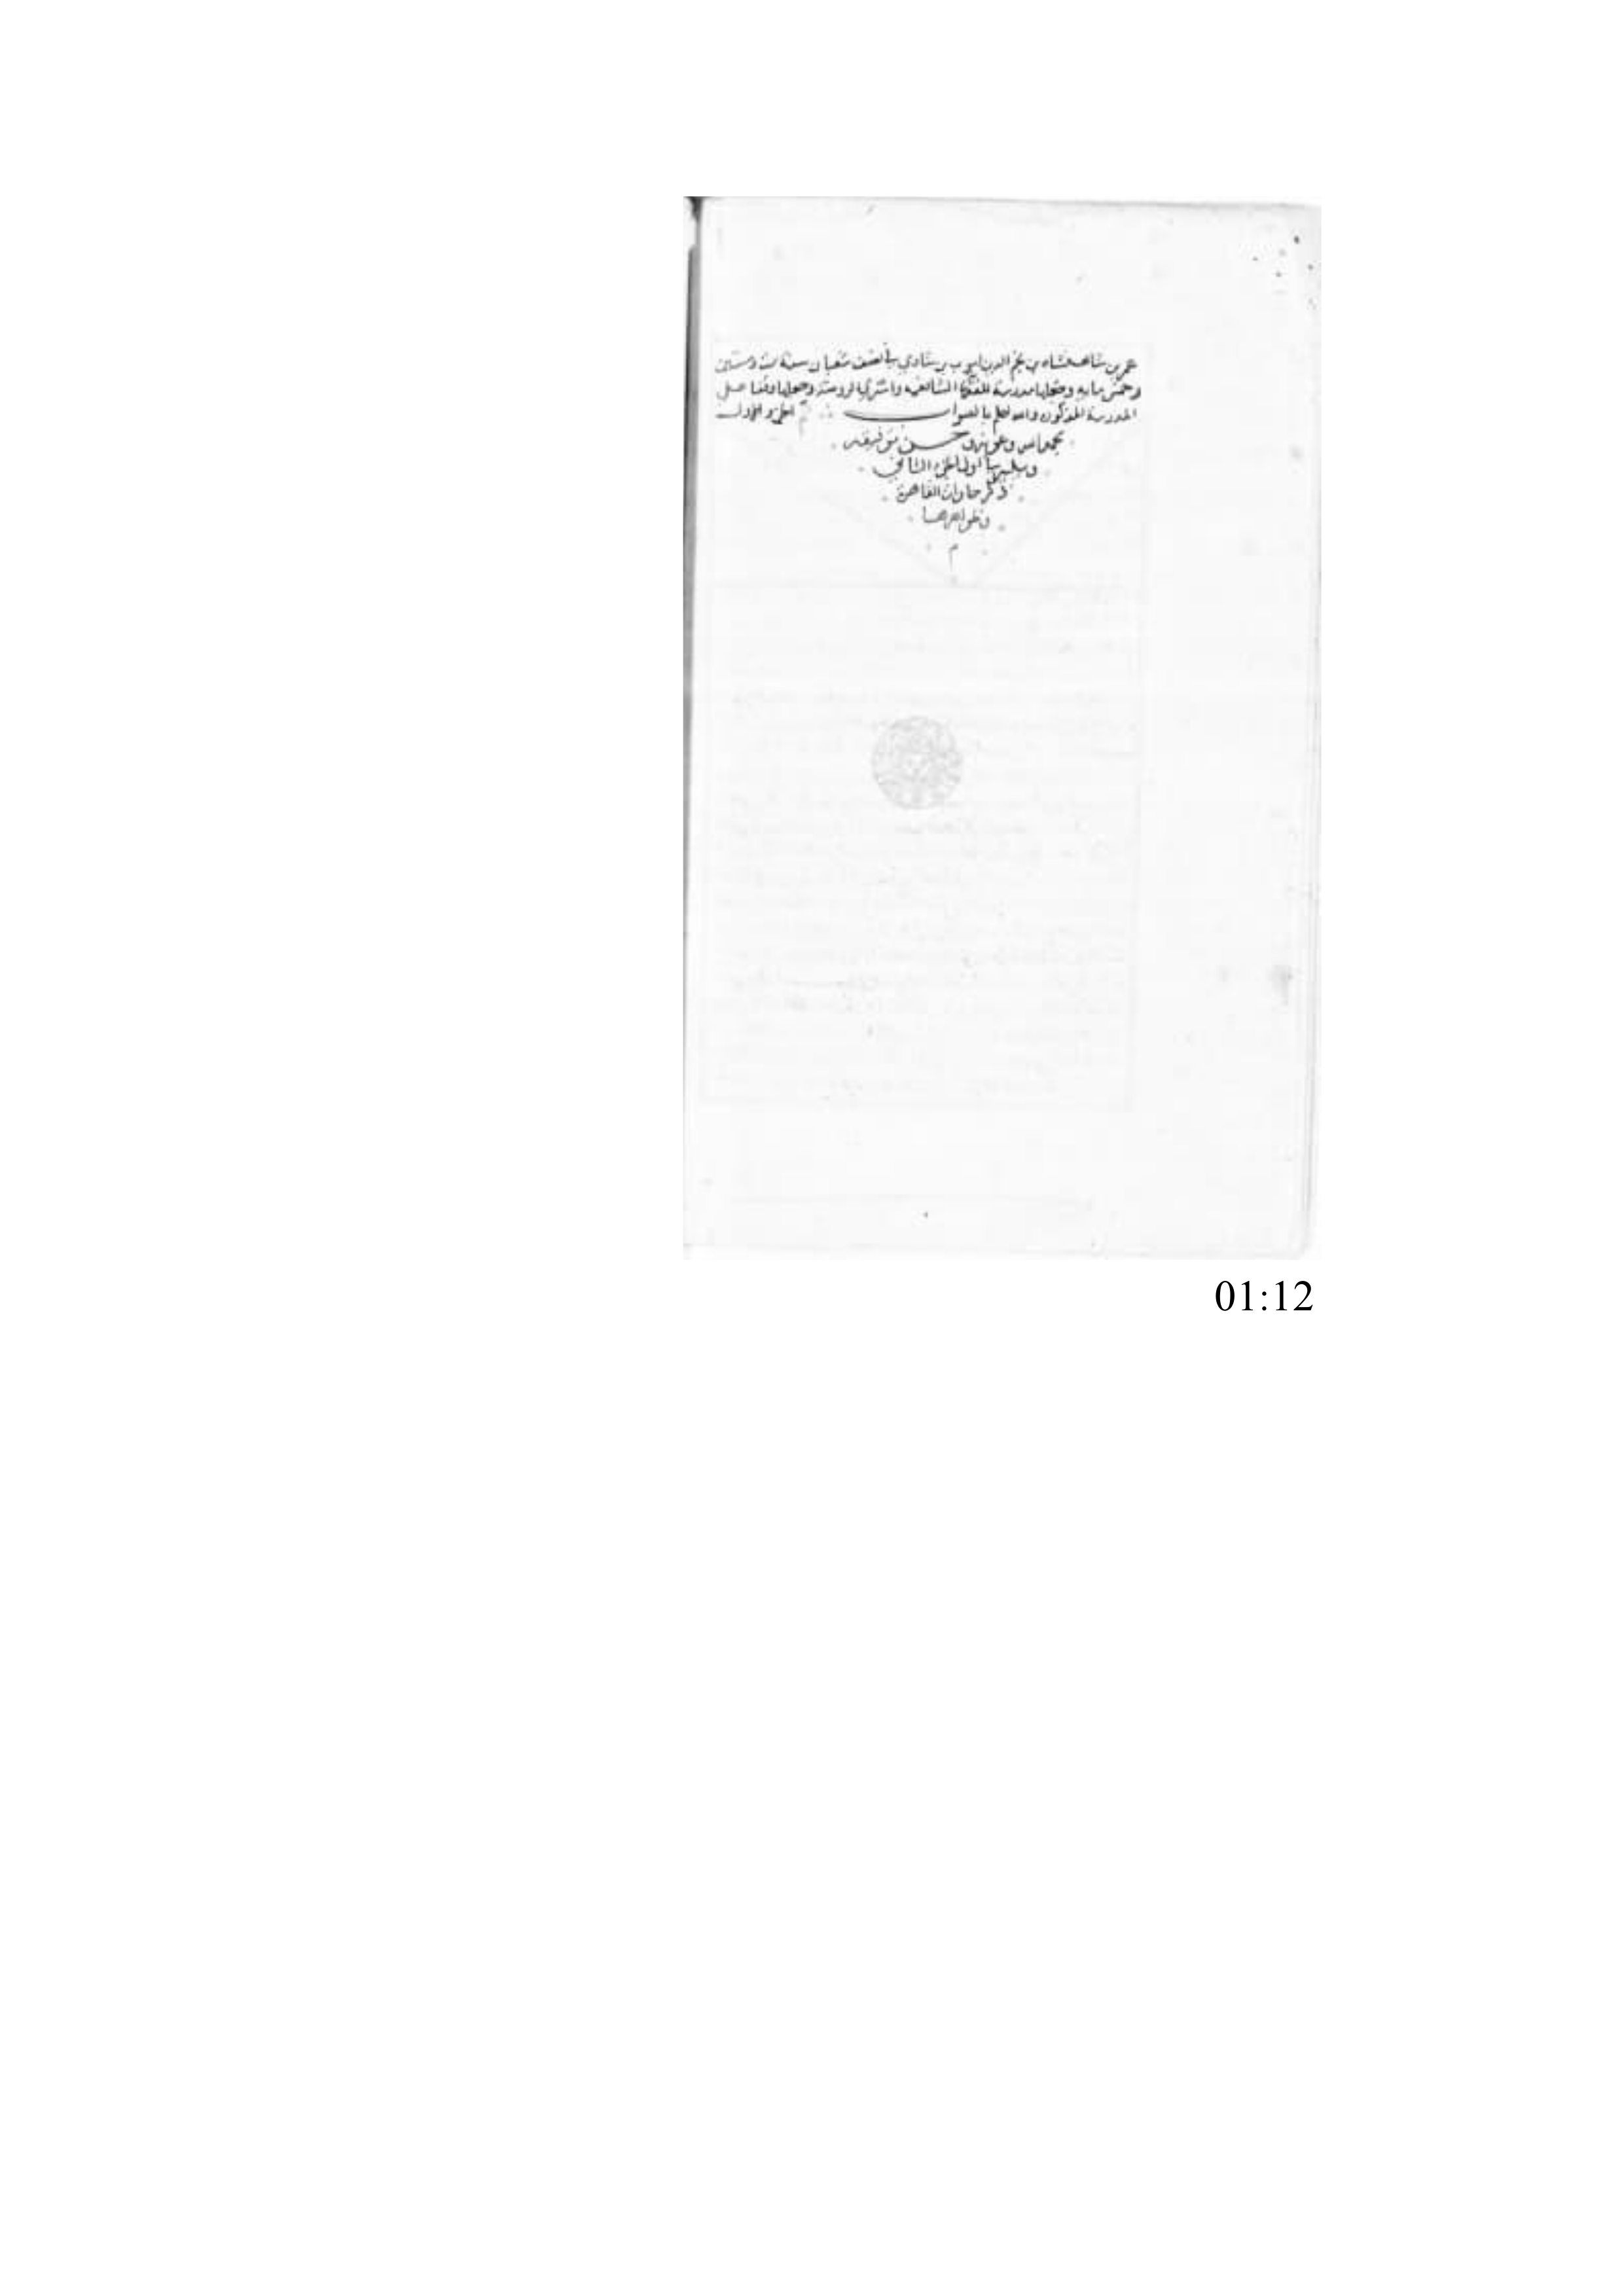 عمر بن شاهنشاه بن نجم الدين ايوب بن شادي في نصف شعبان سنة ست وستين
وخمس مايه وجعلها مدرسة للفقها الشافعيه واشتري الروضة وجعلها وقفا على
المدرسة المذكورة والله اعلم بالصواب تم الجزو الاول
بحمد الله وعونه وحسن توفيقه
ويليه اول الجزء الثاني
ذكر حارات القاهرة
وظواهرها
م
01:12